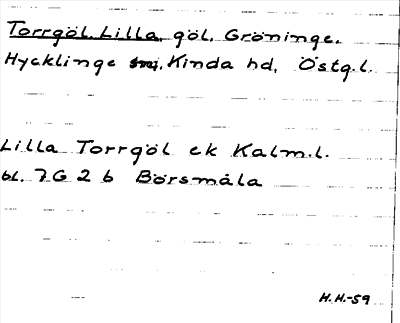 Torrgöl, Lilla, göl, Gröninge,
Hycklinge sn, Kinda hd, Östg.l.
Lilla Torrgöl ek Kalm.l.
bl. 7G 2 b Börsmåla
H.H.-59